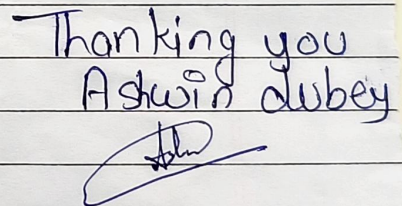 Thanking you
Ashwin dubey